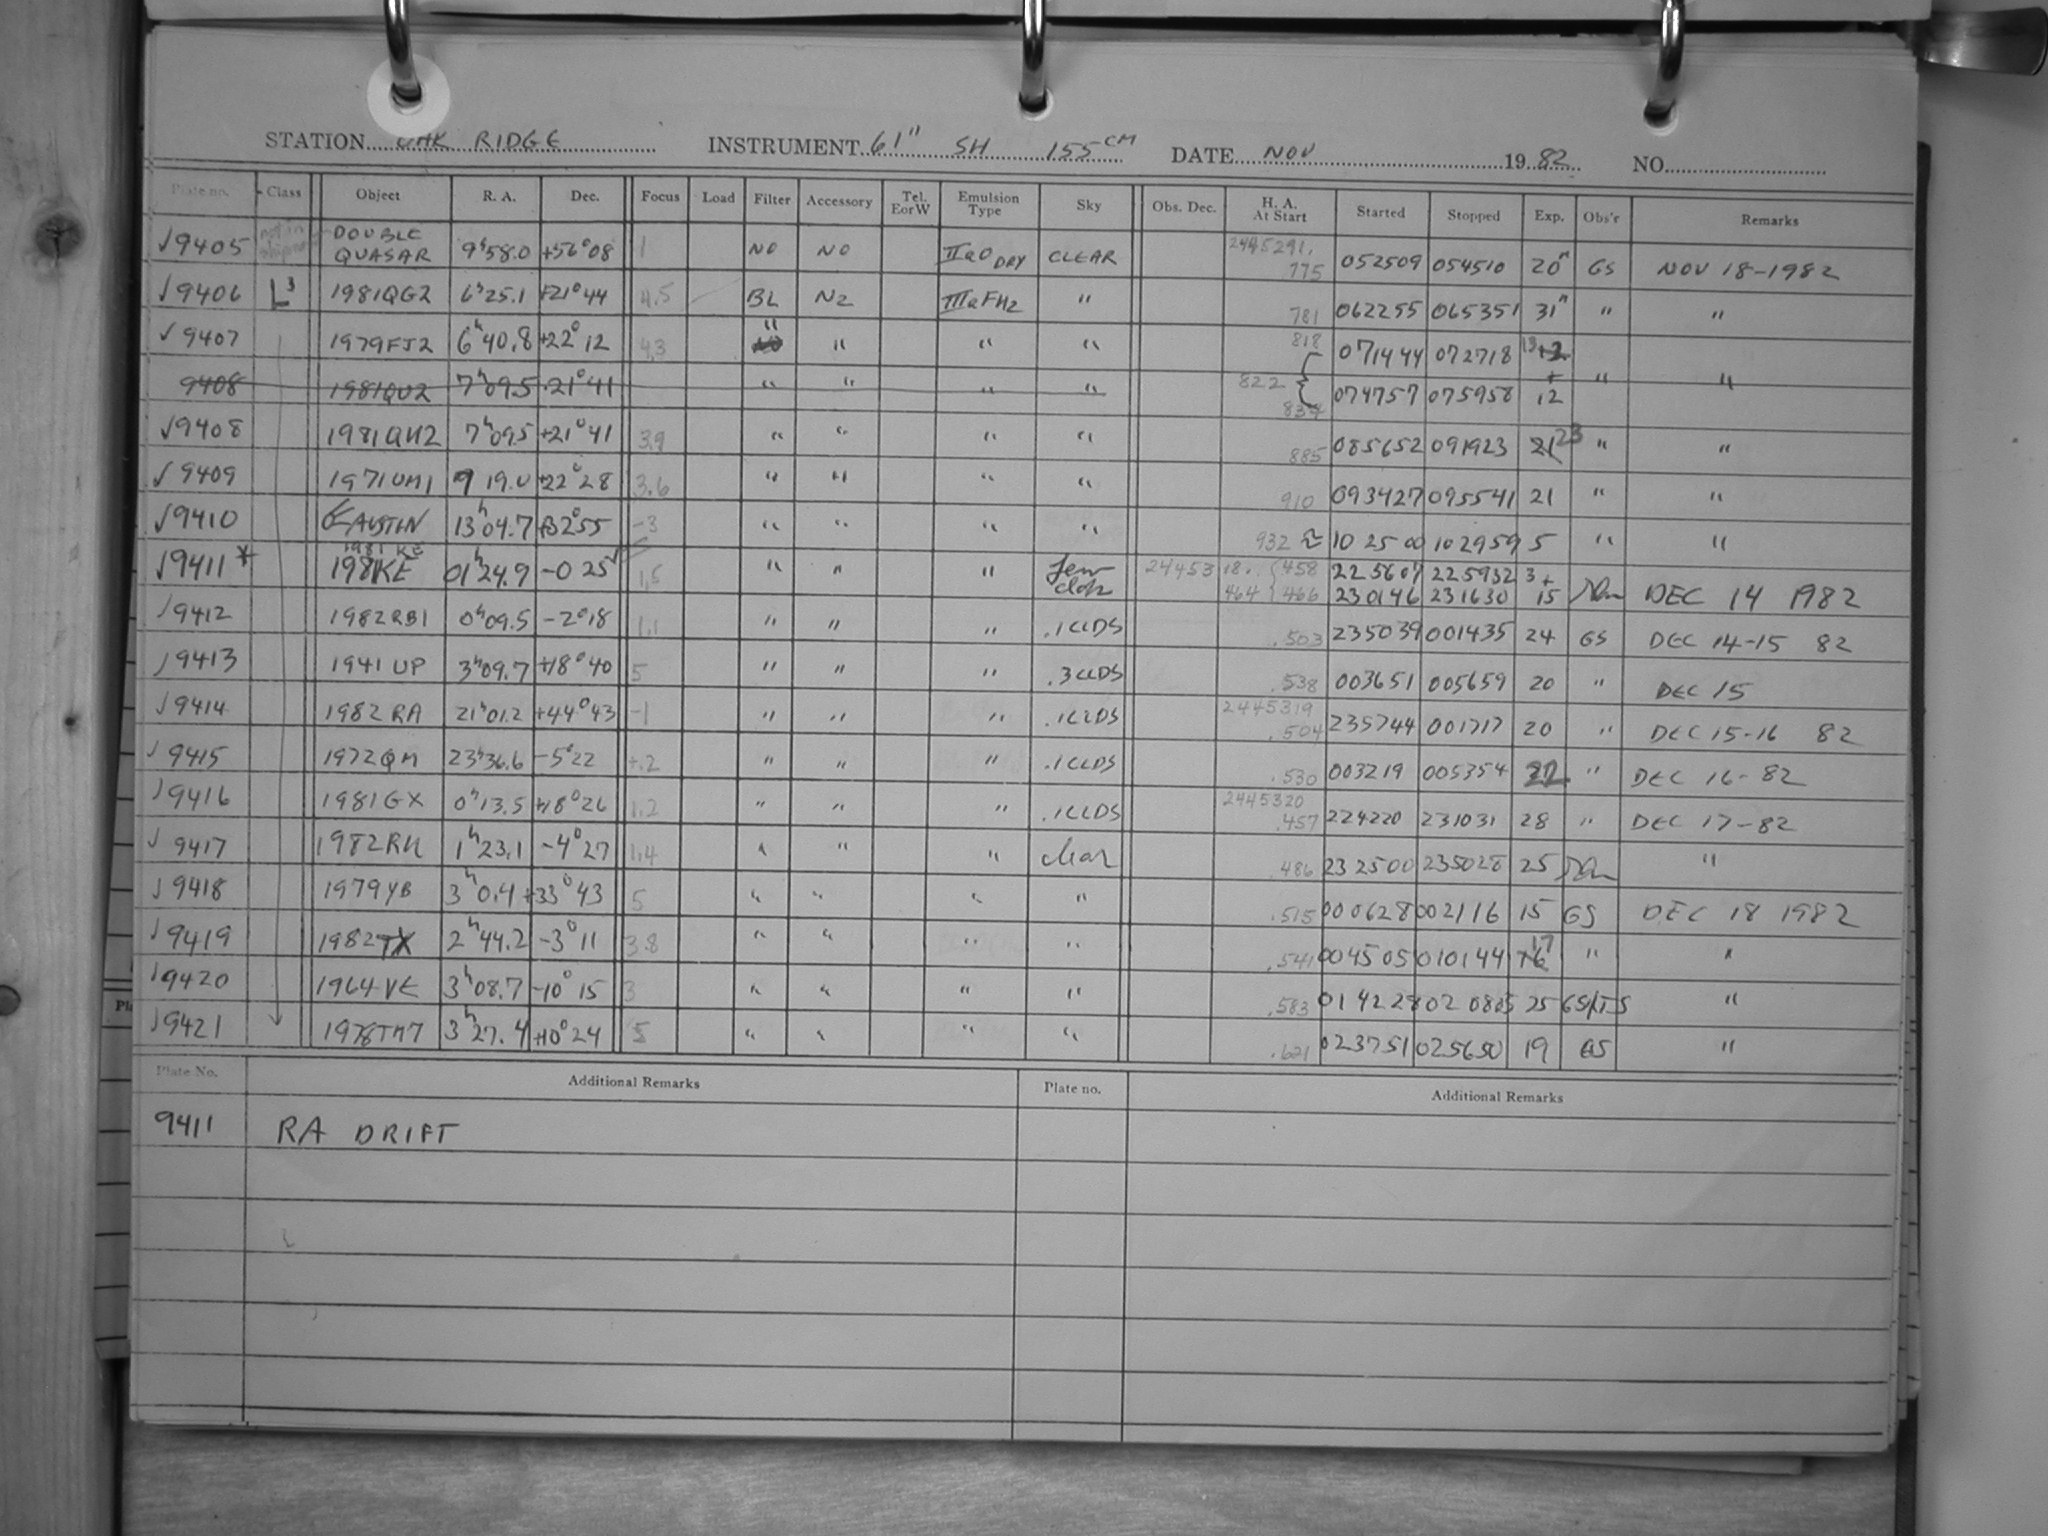 STATION OAK RIDGE INSTRUMENT 61" SH 155 CM DATE NOV 19 82 NO.
Plate no. Class Object R. A. Dec. Focus Load Filter Accessory Tel. EorW Emulsion Type Sky Obs. Dec. H. A. At Start Started Stopped Exp. Obs'r Remarks
√9405 not in DOUBLE QUASAR 9h58.0 +56°08 1 NO NO IIaO DRY CLEAR 2445291. 775 052509 054510 20m GS NOV 18-1982
√9406 L3 1981QG2 6h25.1 +21°44 4.5 BL N2 IIIaFH2 " 781 062255 065351 31m " "
√9407 1979FJ2 6h40.8 +22°12 4.3 " " " " 818 071444 072718 13 + " "
9408 1981QU2 7h09.5 +21°41 " " " " 822 { 834 074757 075958 12
√9408 1981QH2 7h09.5 +21°41 3.9 " " " " 885 085652 091923 21 23 " "
√9409 1971UM1 9 19.0 +22°28 3.6 " " " " 910 093427 095541 21 " "
√9410 AUSTIN 13h04.7 +32°55 -3 " " " " 932 ≈ 102500 102959 5 " "
√9411* 1981 KE 198KE 01h24.9 -0 25 1.5 " " " few clds 24453 18. .458 225607 225932 3+ DEC 14 1982
464 466 230146 231630 15
√9412 1982RB1 0h09.5 -2°18 1.1 " " " .1CLDS .503 235039 001435 24 GS DEC 14-15 82
√9413 1941 UP 3h09.7 +18°40 5 " " " .3CLDS .538 003651 005659 20 " DEC 15
√9414 1982 RA 21h01.2 +44°43 -1 " " " .1CLDS 2445319 .504 235744 001717 20 " DEC 15-16 82
√9415 1972QM 23h36.6 -5°22 +.2 " " " .1CLDS .530 003219 005354 22 " DEC 16-82
√9416 1981GX 0h13.5 +18°26 1.2 " " " .1CLDS 2445320 .457 224220 231031 28 " DEC 17-82
√9417 1982RK 1h23.1 -4°27 1.4 " " " clear .486 232500 235028 25 "
√9418 1979YB 3h0.4 +33°43 5 " " " " .515 000628 002116 15 GS DEC 18 1982
√9419 1982TX 2h44.2 -3°11 3.8 " " " " .541 004505 010144 16 17 " "
√9420 1964VE 3h08.7 -10°15 3 " " " " .583 014228 020805 25 GS/TS "
√9421 1978TM7 3h27.4 +10°24 5 " " " " .621 023751 025650 19 GS "
Plate No. Additional Remarks Plate no. Additional Remarks
9411 RA DRIFT
Pl